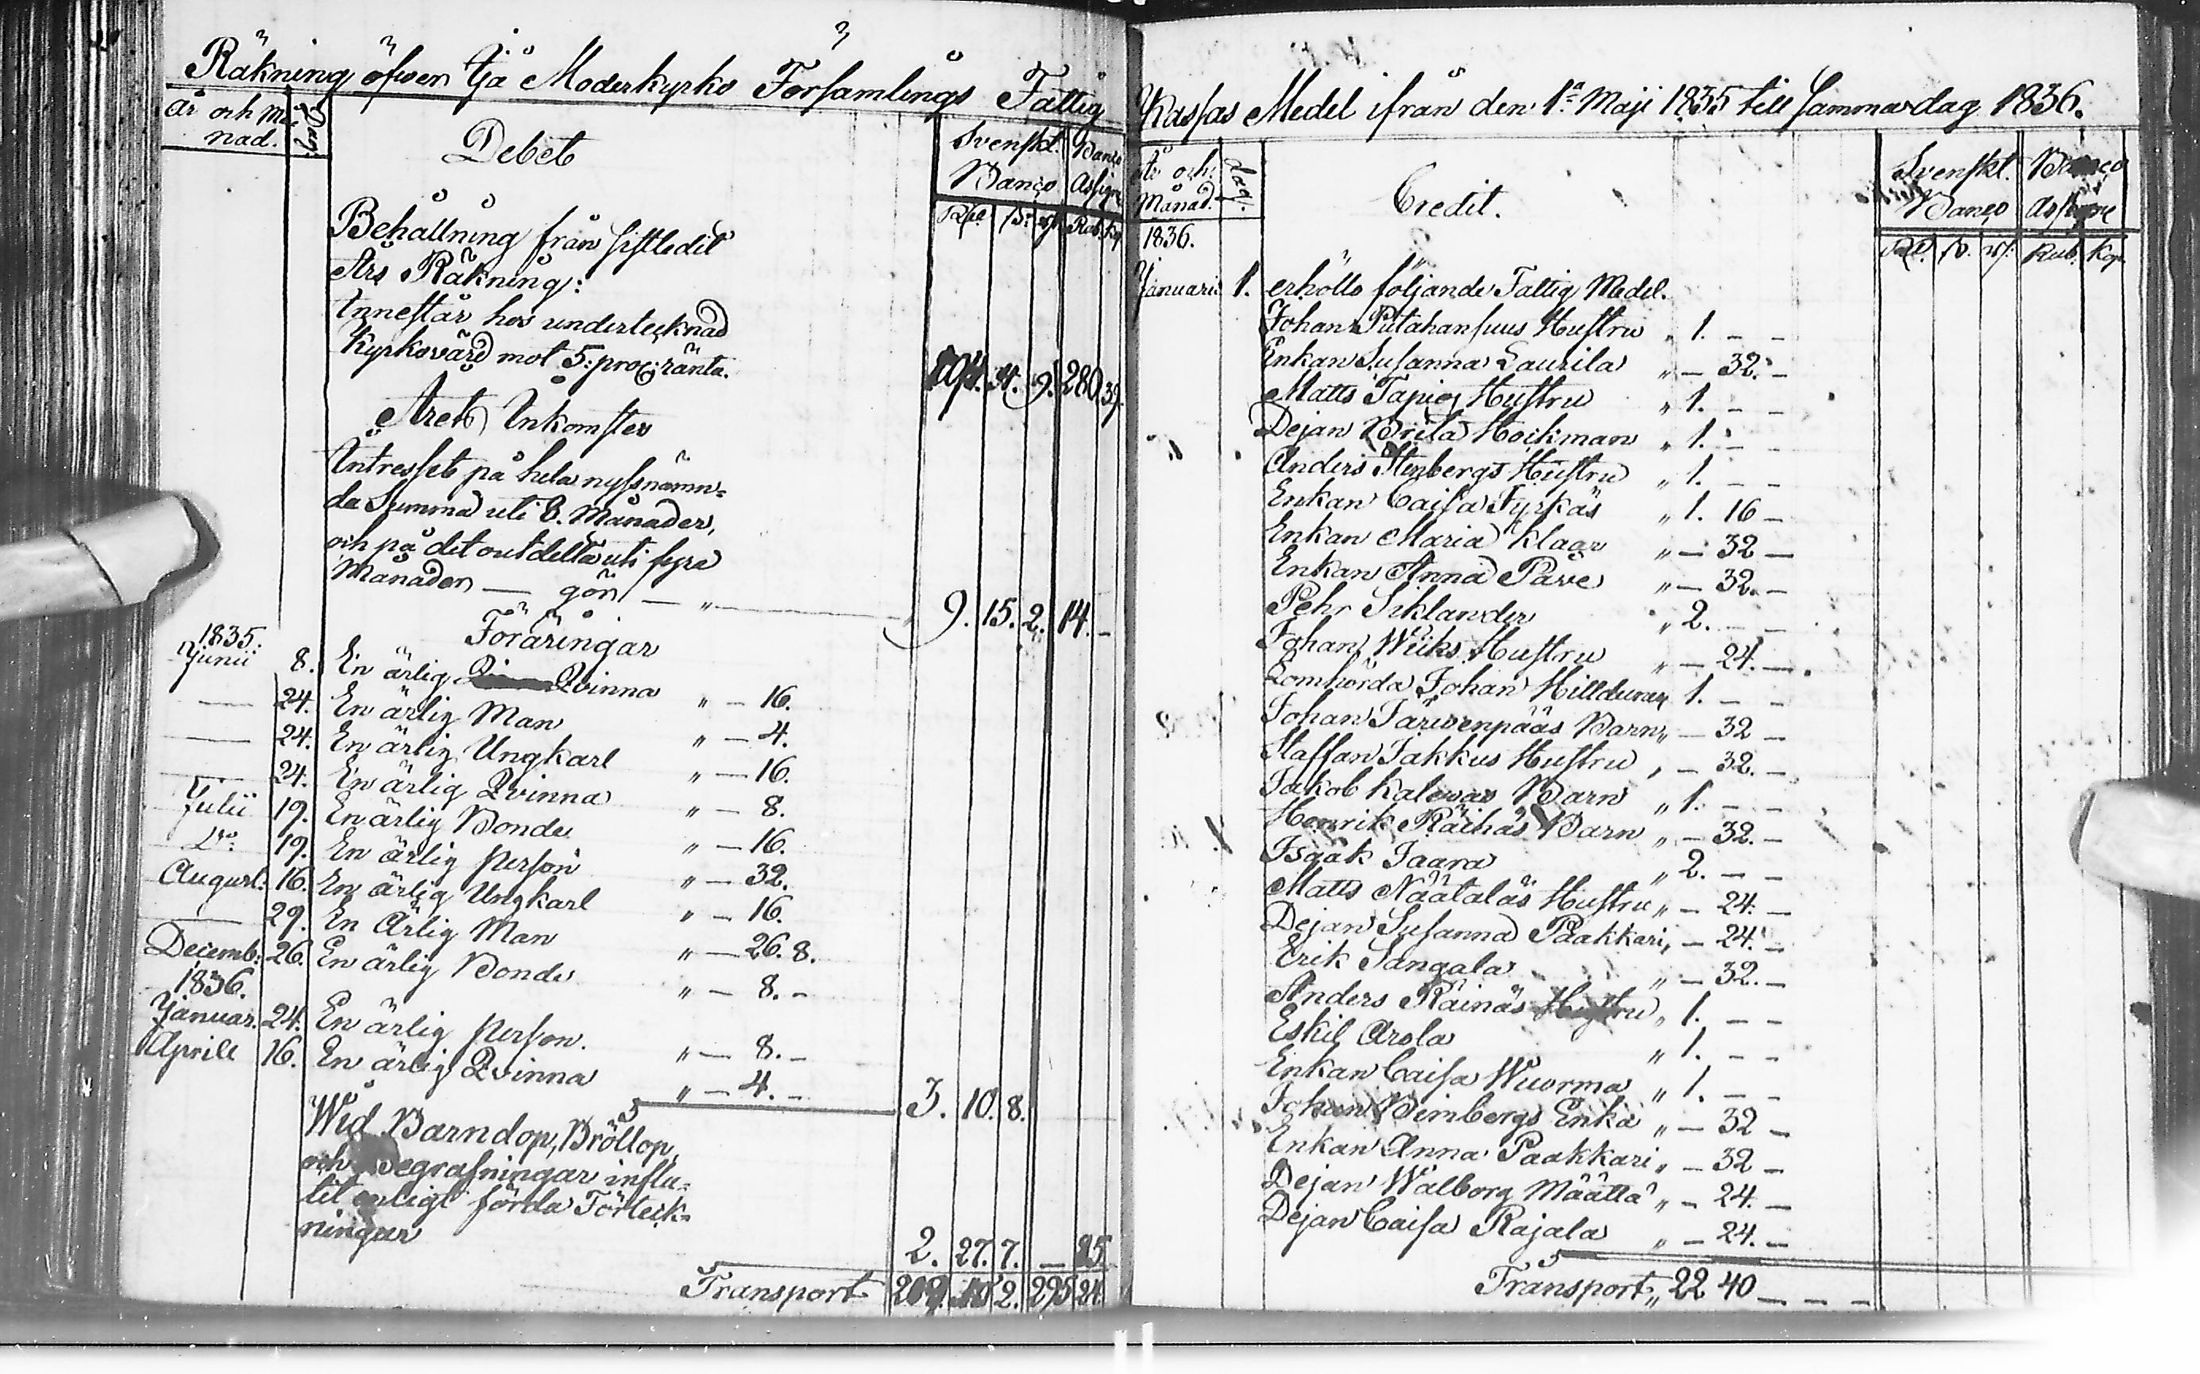 Räkning öfver Ijå Moderkyrko Församlings Fattig
År och Må-
nad.
Dag.
Debet
Svenskt
Banco
Banco
Assign
Rd. s. r. Rub. Kop
Behållning från sistledit
Års Räkning:
Innestår hos undertecknad
Kyrkovärd mot 5: proC: ränta.
9. 280 39.
Årets Inkomster
Intresset på hela nyssnämn-
da Summa uti 8. Månader,
och på det outdelta uti fyra
Månader — gör — " 9. 15. 2. 14. –
Föräringar
1835.
Junii 8. En ärlig Qvinna " – 16.
— 24. En ärlig Man " – 4.
— 24. En ärlig Ungkarl " – 16.
— 24. En ärlig Qvinna " – 8.
Julii 19. En ärlig Bonde " – 16.
Do: 19. En ärlig person " – 32.
August. 16. En ärlig Ungkarl " – 16.
— 29. En Ärlig Man " – 26. 8.
Decemb: 26. En ärlig Bonde " – 8. –
1836.
Januar. 24. En ärlig person. " – 8. –
Aprill 16. En ärlig Qvinna " – 4. –
3. 10. 8.
Wid Barndop, Bröllop,
och Begrafningar influ-
tit enligt förda Förteck-
ningar 2. 27. 7. – 25.
Transport 209. 10 2. 295 24.
Kassas Medel ifrån den 1a Maji 1835 till samma dag 1836.
År och
Månad.
dag.
Credit.
Svenskt.
Banco
Banco
Assigne
Rd. s. r. Rub. Kop
1836.
Januarii 1. erhöllo följande Fattig Medel.
Johan Putahansuus Hustru " 1. – –
Enkan Susanna Laurila " – 32. –
Matts Tapios Hustru " 1. – –
Dejan Brita Hoikman " 1. – –
Anders Stenbergs Hustru " 1. – –
Enkan Caisa Tyrkäs " 1. 16 –
Enkan Maria Klaar " – 32 –
Enkan Anna Pave " – 32. –
Pehr Siklander " 2. – –
Johan Wiiks Hustru " – 24. –
Lomhörda Johan Hilldunen 1. – –
Johan Järvenpääs Barn " – 32 –
Staffan Jakkus Hustru " – 32. –
Jakob Kalevas Barn " 1. – –
Henrik Räihäs Barn " – 32. –
Isaak Jaara " 2. – –
Matts Näätaläs Hustru " – 24. –
Dejan Susanna Paakkari " – 24. –
Erik Sangala " – 32. –
Anders Räinäs Hustru " 1. – –
Eskil Arola " 1. – –
Enkan Caisa Wuorma " 1. – –
Johan Beinbergs Enka " – 32 –
Enkan Anna Paakkari " – 32 –
Dejan Walborg Määttä " – 24. –
Dejan Caisa Rajala " – 24. –
Transport " 22 40 – – –